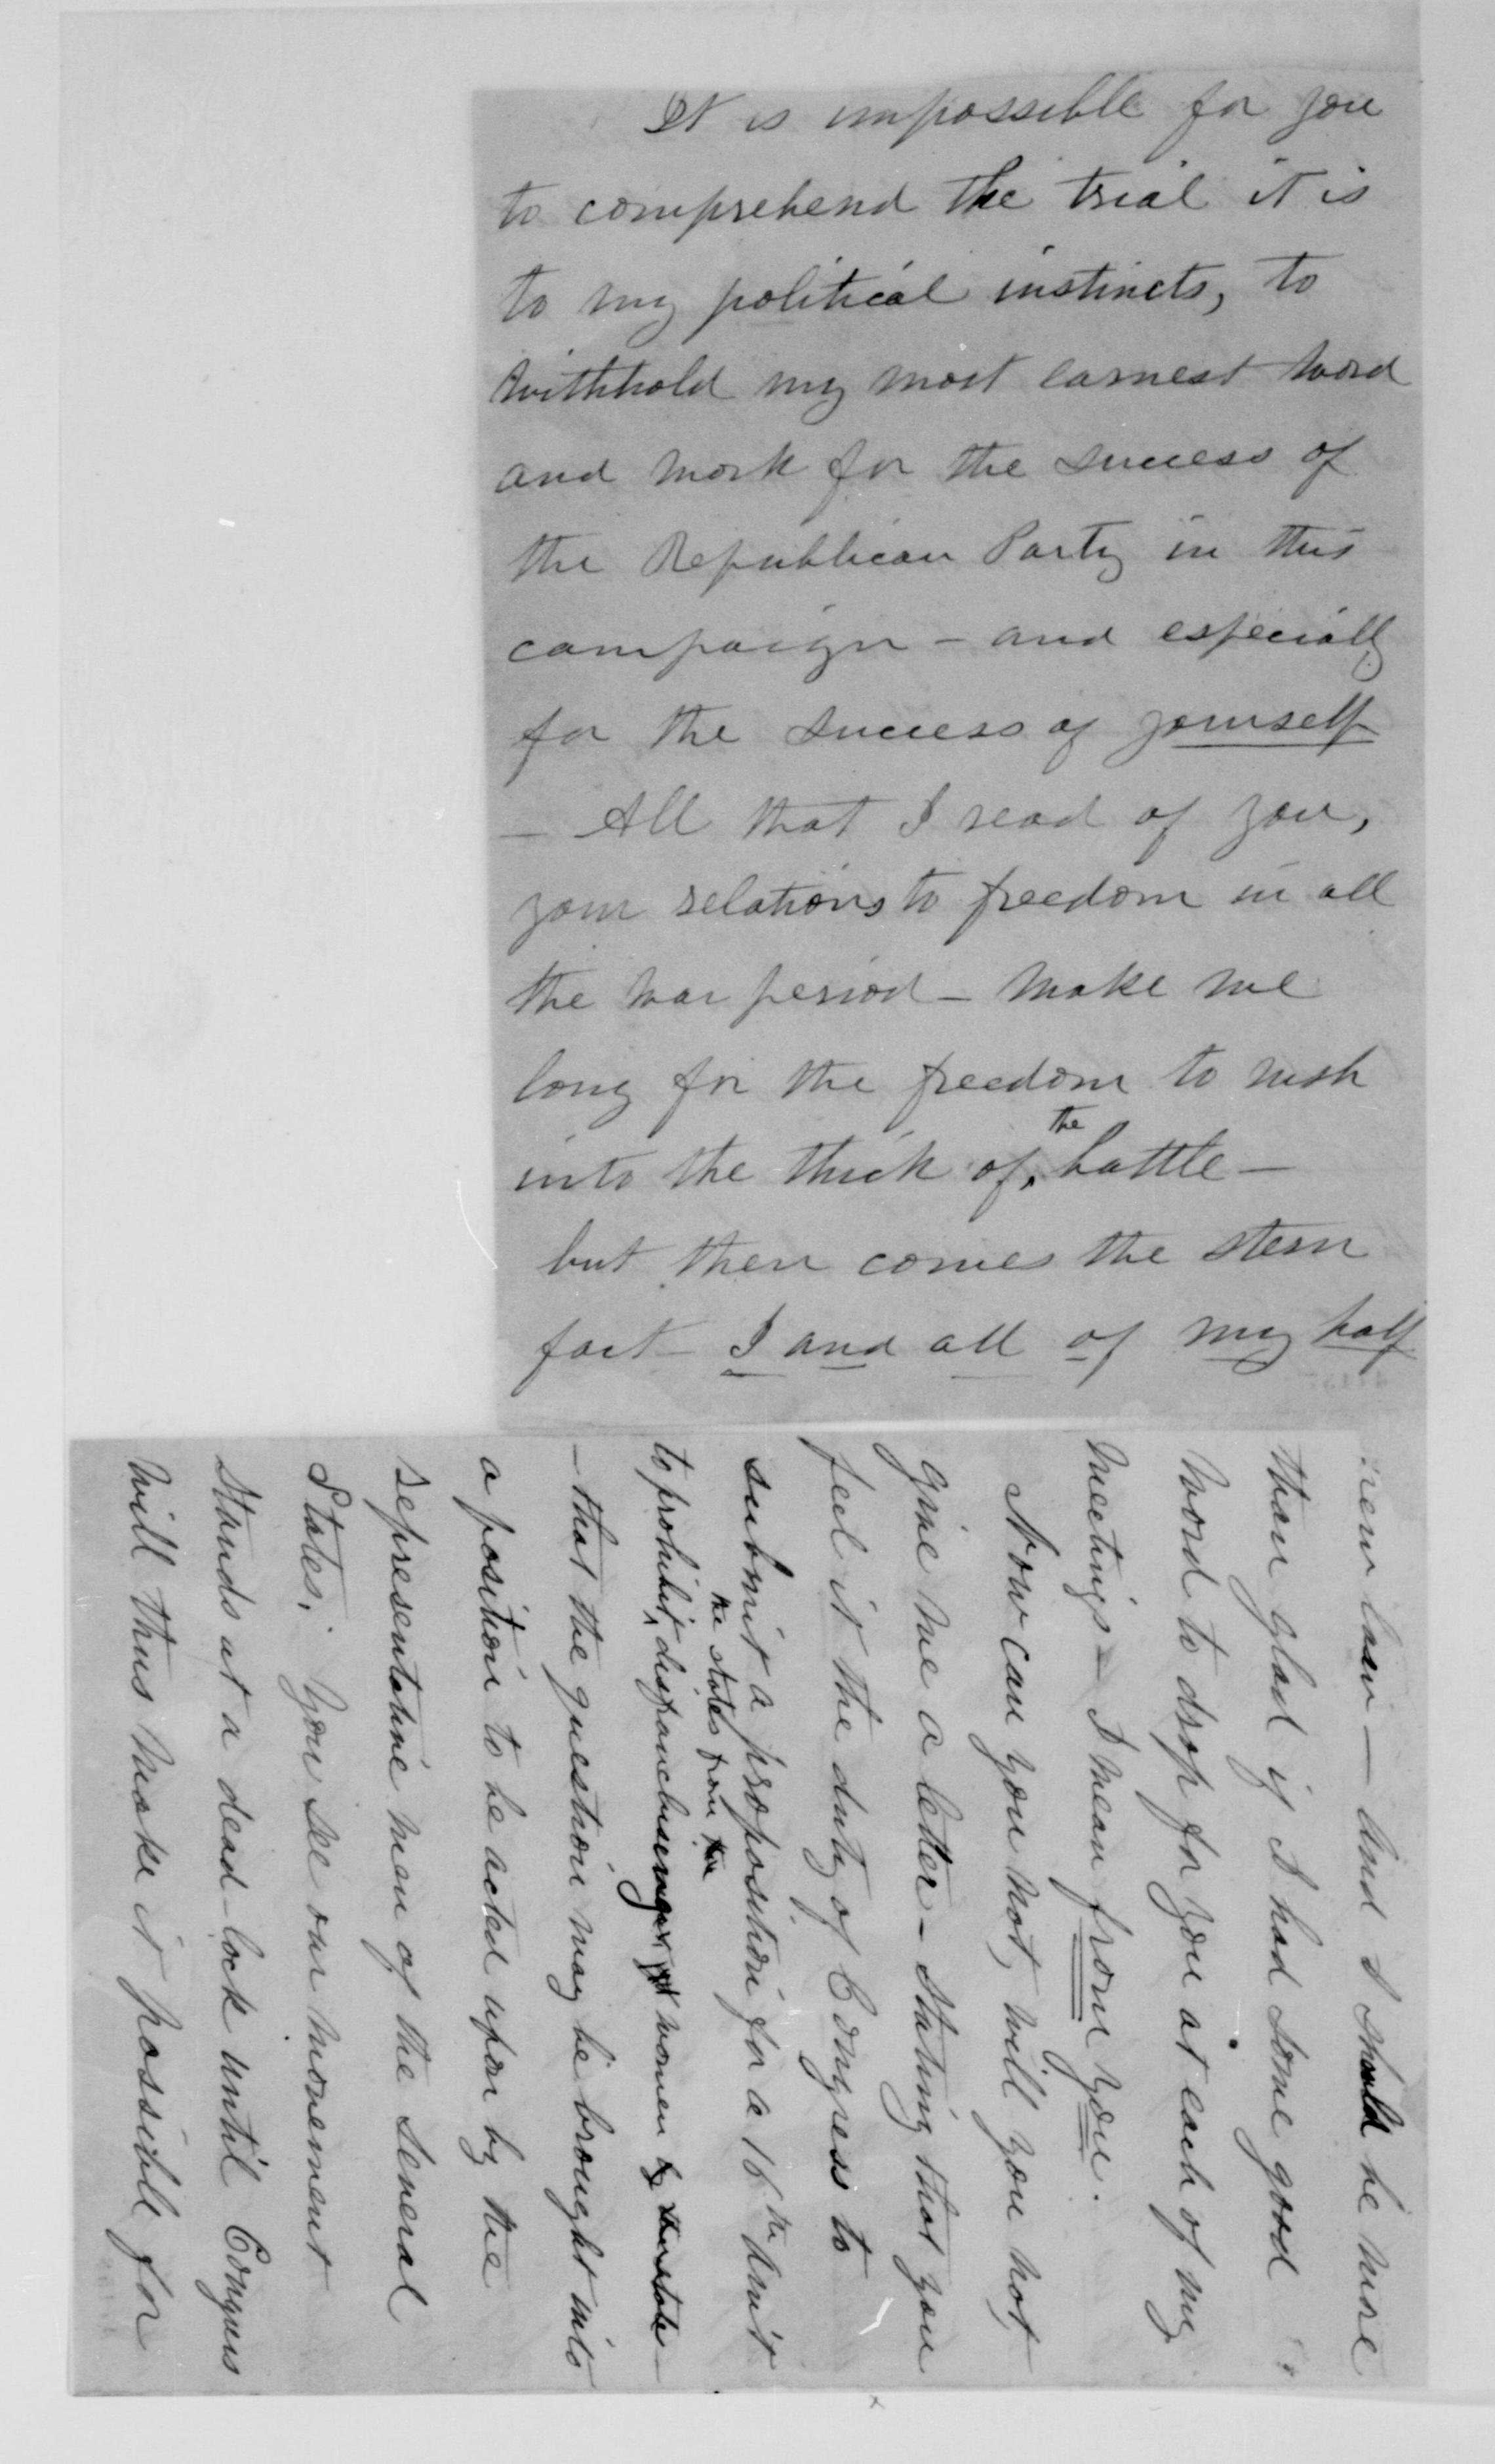 It is impossible for you
to comprehend the trial it is
to my political instincts, to
withhold my most earnest word
and work for the success of
the Republican Party in this
campaign - and especially
for the success of yourself
- All that I read of you,
your relations to freedom in all
the war period - make me
long for the freedom to rush
into the thick of the battle -
but then comes the stern
fact - I and all of my half
- And I should be more
than glad if I had some good
word to drop for you at each of my
meetings - I mean from you.
Now can you not, will you not
give me a letter - stating that you
feel it the duty of Congress to
submit a proposition for a 16th Am't
the states from the
to prohibit disfranchisement women
- that the question may be brought into
a position to be acted upon by the
representative men of the several
States. You see our movement
stands at a dead-lock until Congress
will thus make it possible for